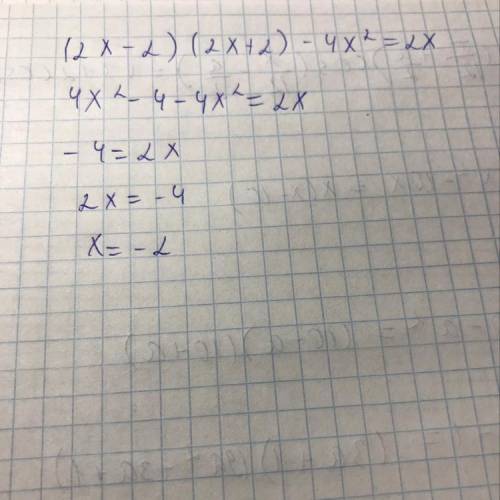 (2x-2)(2x+2)-4x²=2x
4x²-4-4x²=2x
-4=2x
2x=-4
x=-2